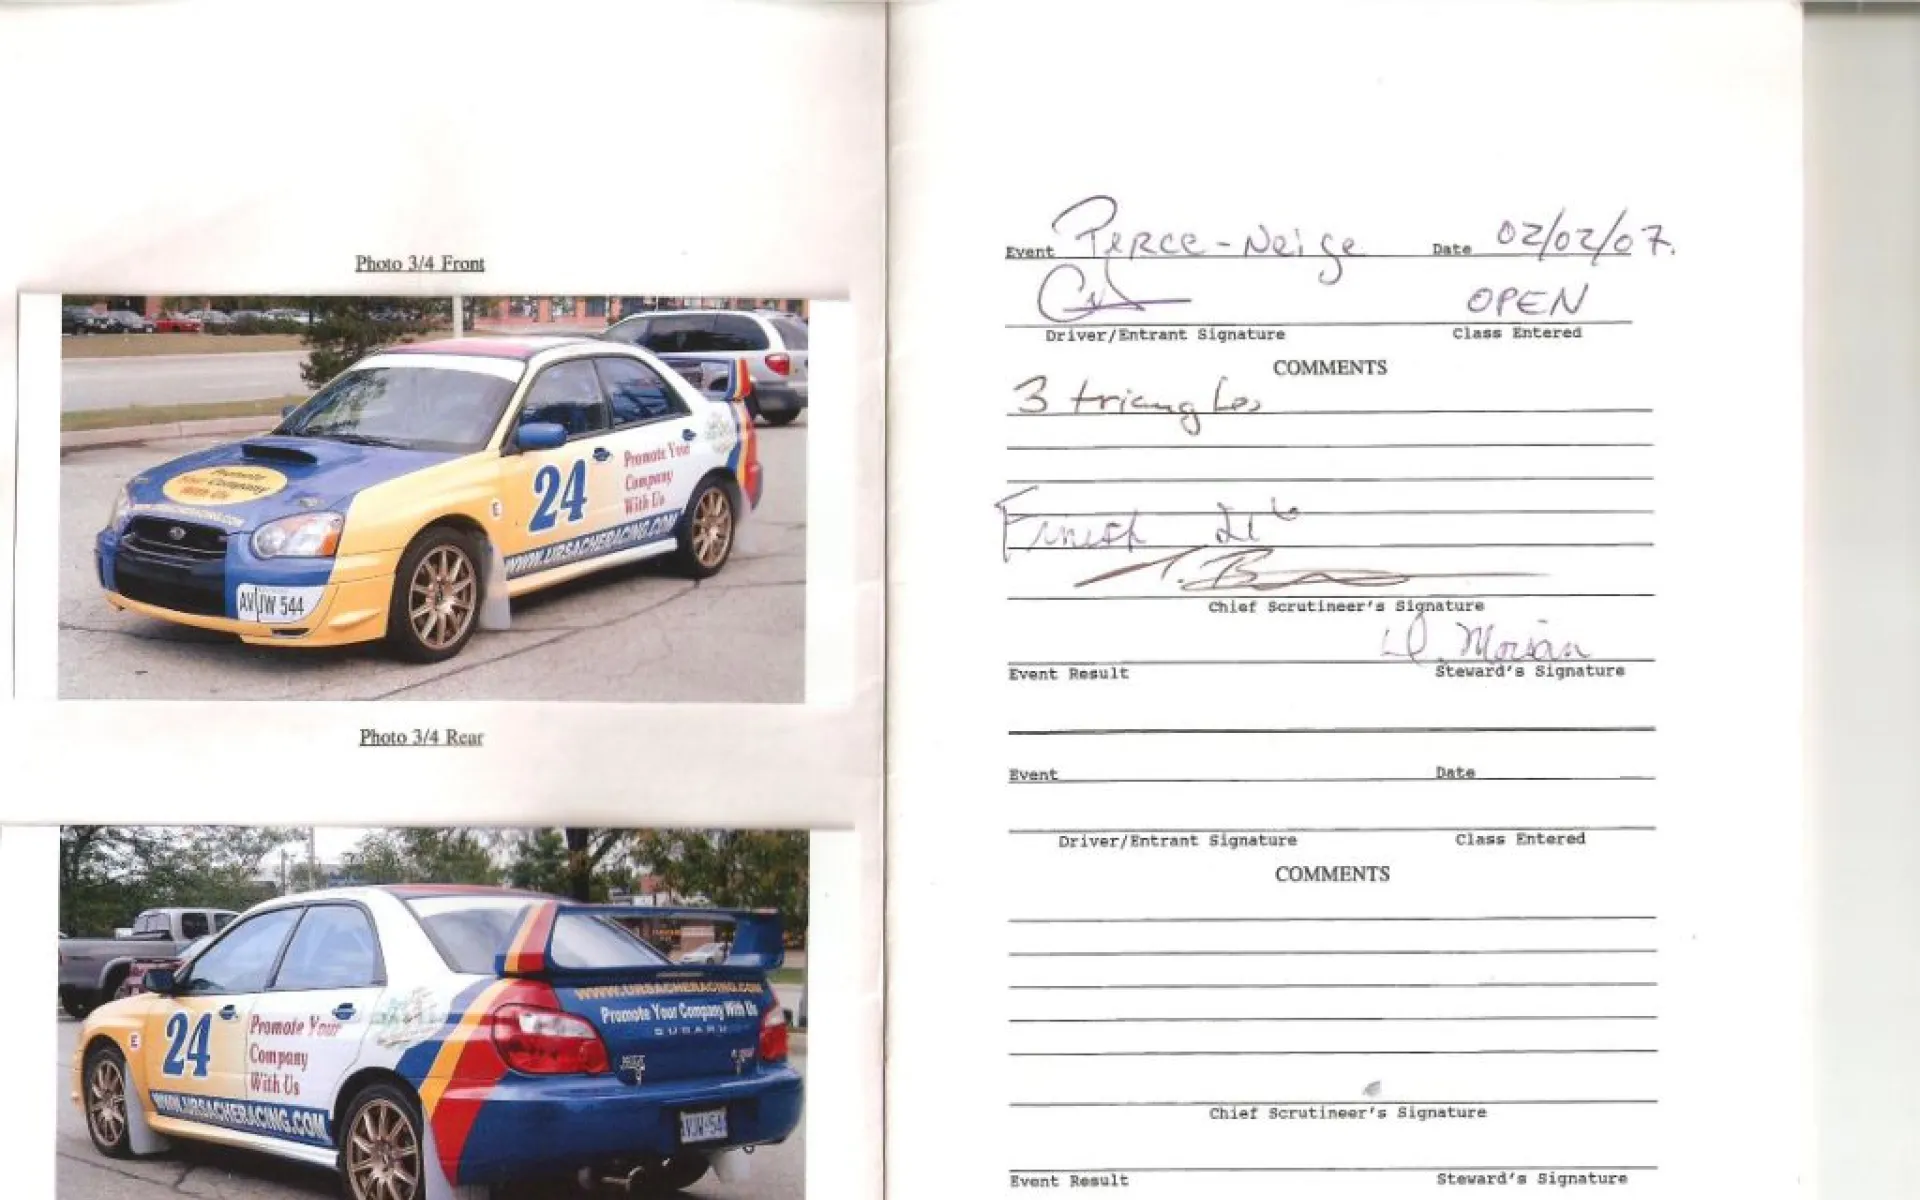 Photo 3/4 Front
Promote
Your Company
With Us
24
Promote Your
Company
With Us
E
WWW.URSACHERACING.COM
AVJW 544
Photo 3/4 Rear
24
E
Promote Your
Company
With Us
WWW.URSACHERACING.COM
WWW.URSACHERACING.COM
Promote Your Company With Us
SUBARU
Event Perce-Neige Date 02/02/07.
OPEN
Driver/Entrant Signature Class Entered
COMMENTS
3 triangles
Finish
Chief Scrutineer's Signature
Event Result Steward's Signature
Event Date
Driver/Entrant Signature Class Entered
COMMENTS
Chief Scrutineer's Signature
Event Result Steward's Signature